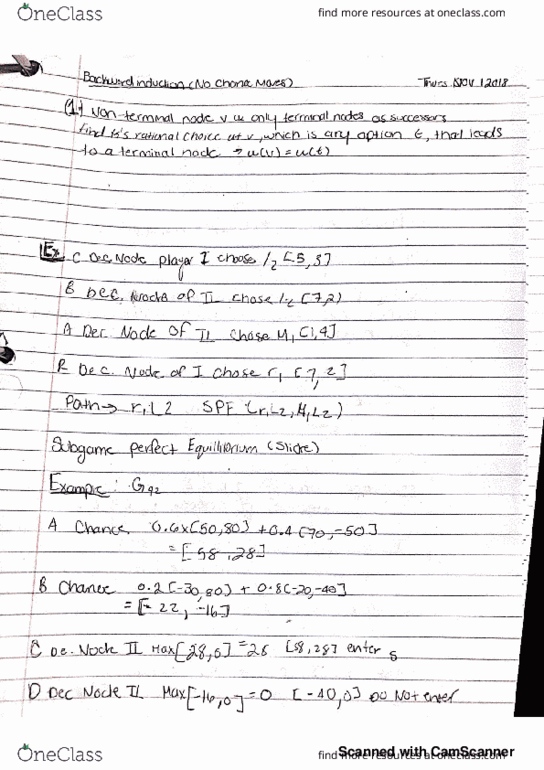 OneClass
find more resources at oneclass.com
Backward induction (No Chance Moves)
Thurs Nov 1 2018
(1) Non-terminal node v w only terminal nodes as successors
find is's rational choice at v, which is any option t, that leads
to a terminal node → u(v) = u(t)
Ex
C Dec. Node player I choose l2 [5,3]
B Dec. Node of II chose L2 (7,2)
A Dec. Node Of II Chose M, [1,4]
R Dec. Node of I chose r, [7,2]
Path → r, L2 SPE (r, L2, M, L2)
Subgame perfect Equilibrium (Slide)
Example: G92
A Chance 0.6x[50,80] + 0.4[70,-50]
= [58,28]
B Chance 0.2[-30,80] + 0.8[-20,-40]
= [-22, -16]
C De. Node II Max[28,0] = 28 [58,28] enter
D Dec Node II Max[-16,0] = 0 [-40,0] Do Not enter
OneClass
find more resources at oneclass.com
Scanned with CamScanner